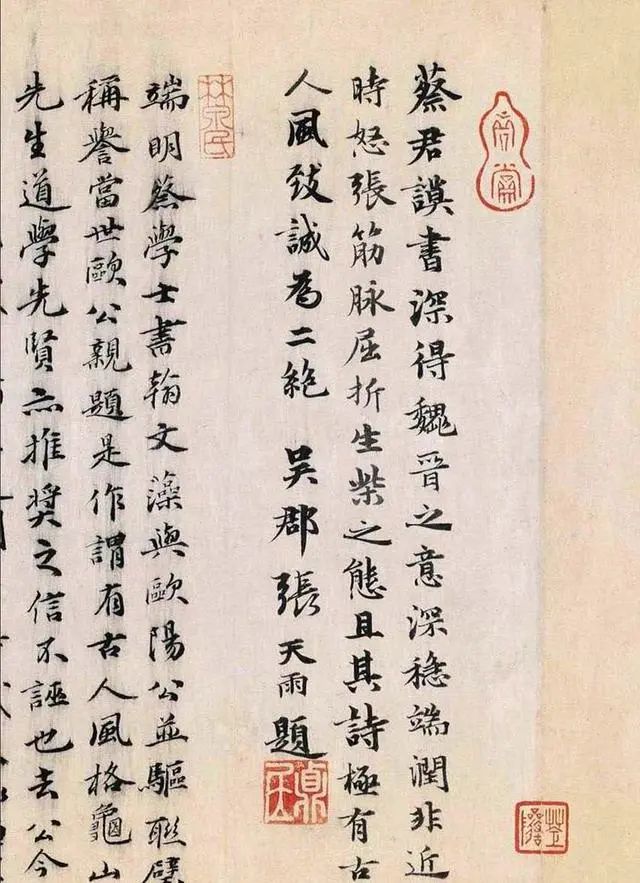 蔡君謨書深得魏晉之意深穩端潤非近
時怒張筋脉屈折生柴之態且其詩極有古
人風致誠為二絶 吳郡張天雨題
端明蔡學士書翰文藻與歐陽公並驅聯璧
稱譽當世歐公親題是作謂有古人風格龜山
先生道學先賢亦推奬之信不誣也去公今